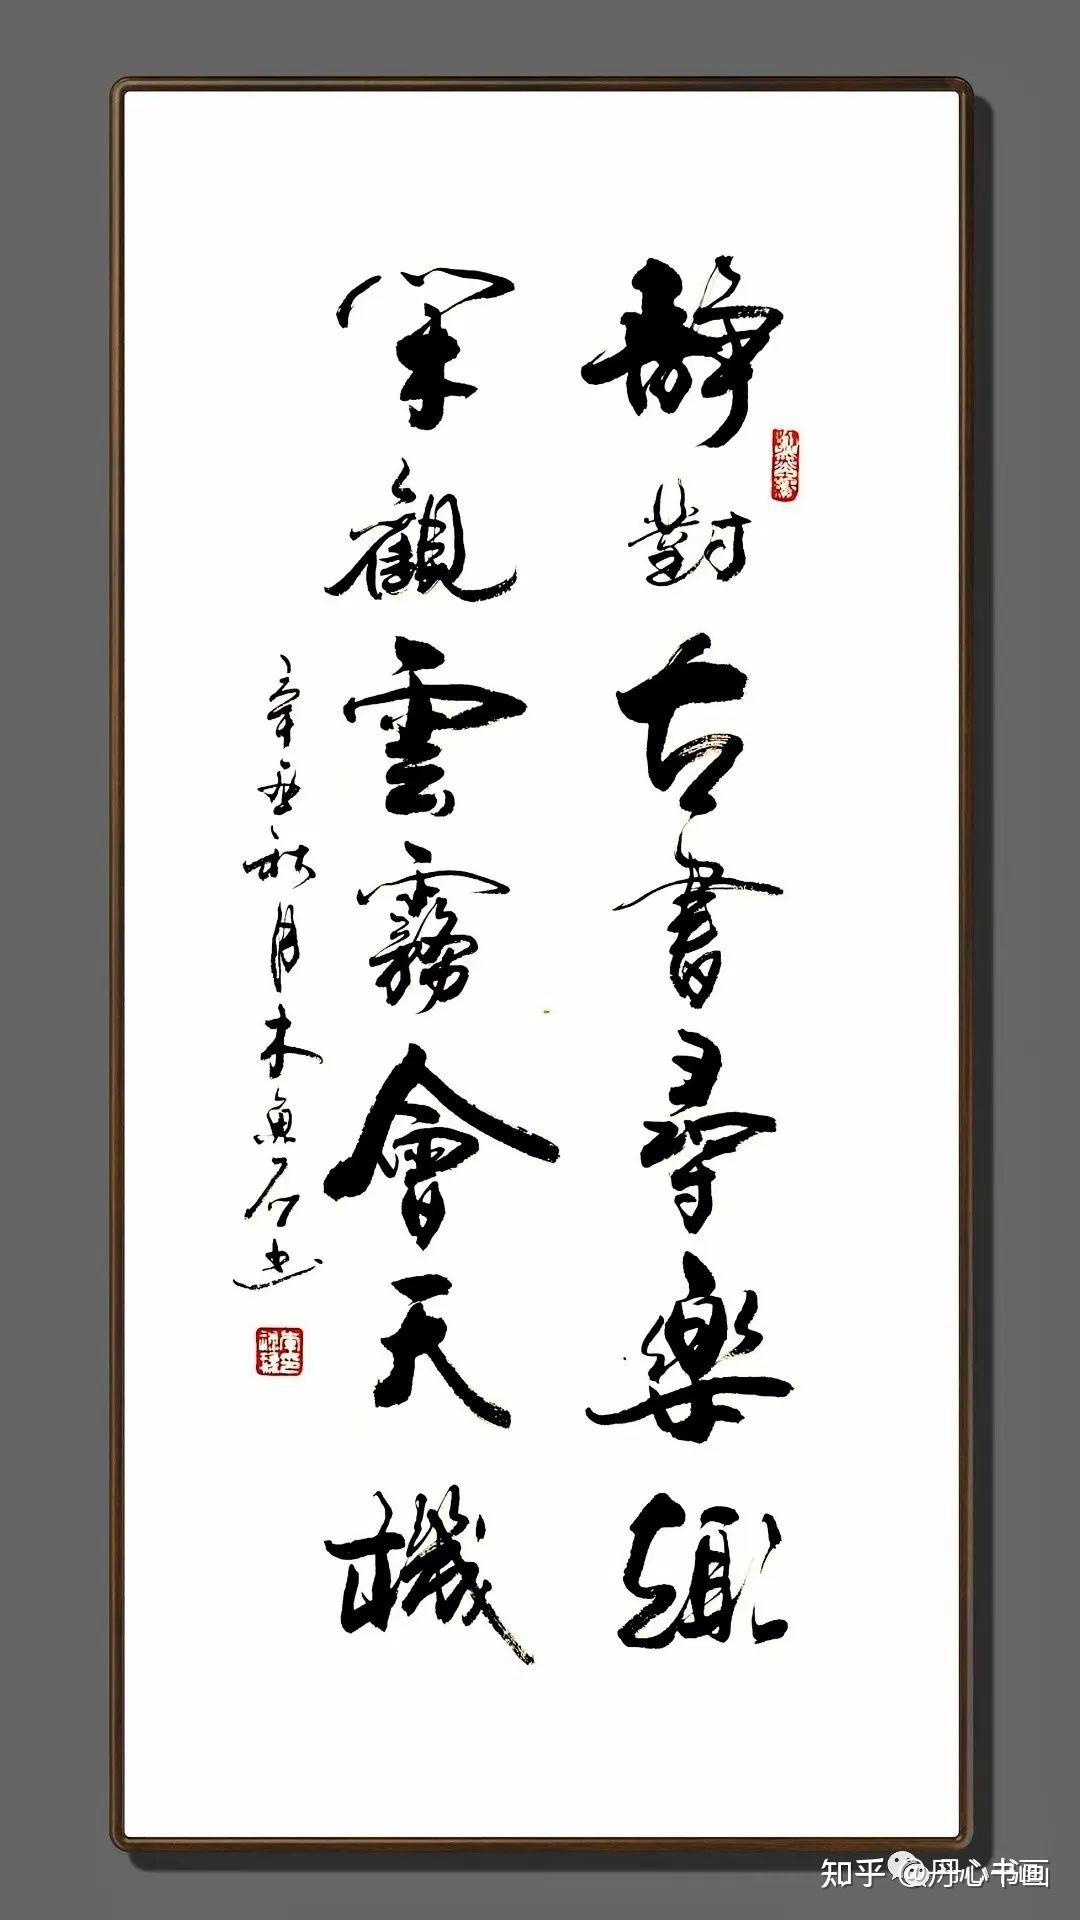 靜對古書尋樂趣
閑觀雲霧會天機
辛丑秋月木魚石書
知乎 @丹心书画